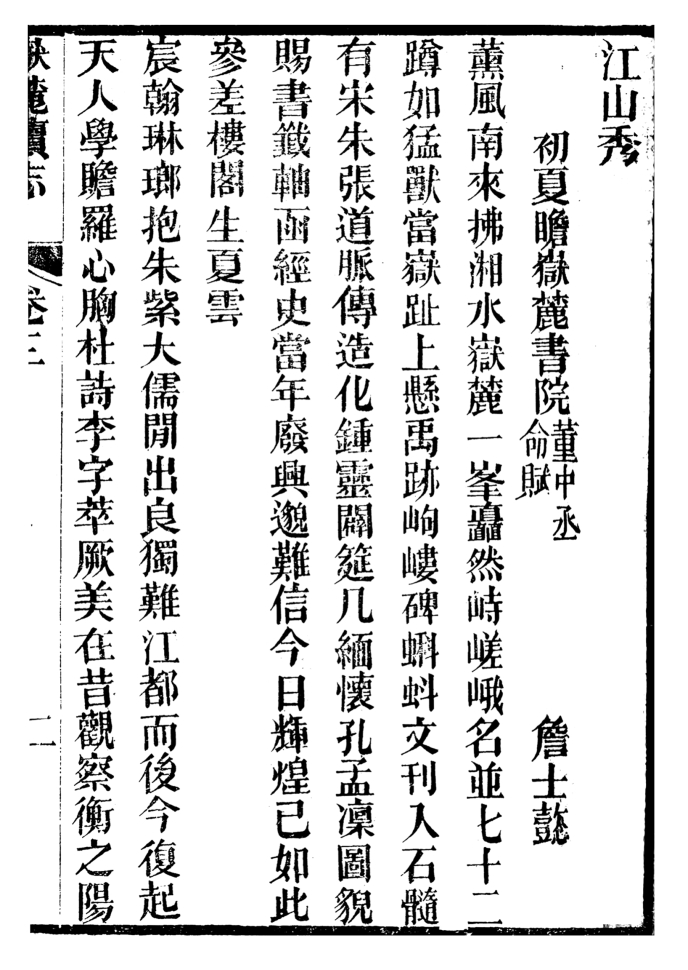 江山秀
初夏瞻嶽麓書院董中丞命賦 詹士懿
薰風南來拂湘水嶽麓一峯矗然峙嵯峨名並七十二
蹲如猛獸當嶽趾上懸禹跡岣嶁碑蝌蚪文刊入石髓
有宋朱張道脈傳造化鍾靈闢筵几緬懷孔孟凜圖貌
賜書籤軸函經史當年廢興邈難信今日輝煌已如此
參差樓閣生夏雲
宸翰琳瑯抱朱紫大儒閒出良獨難江都而後今復起
天人學贍羅心胸杜詩李字萃厥美在昔觀察衡之陽
嶽麓續志 卷三 二